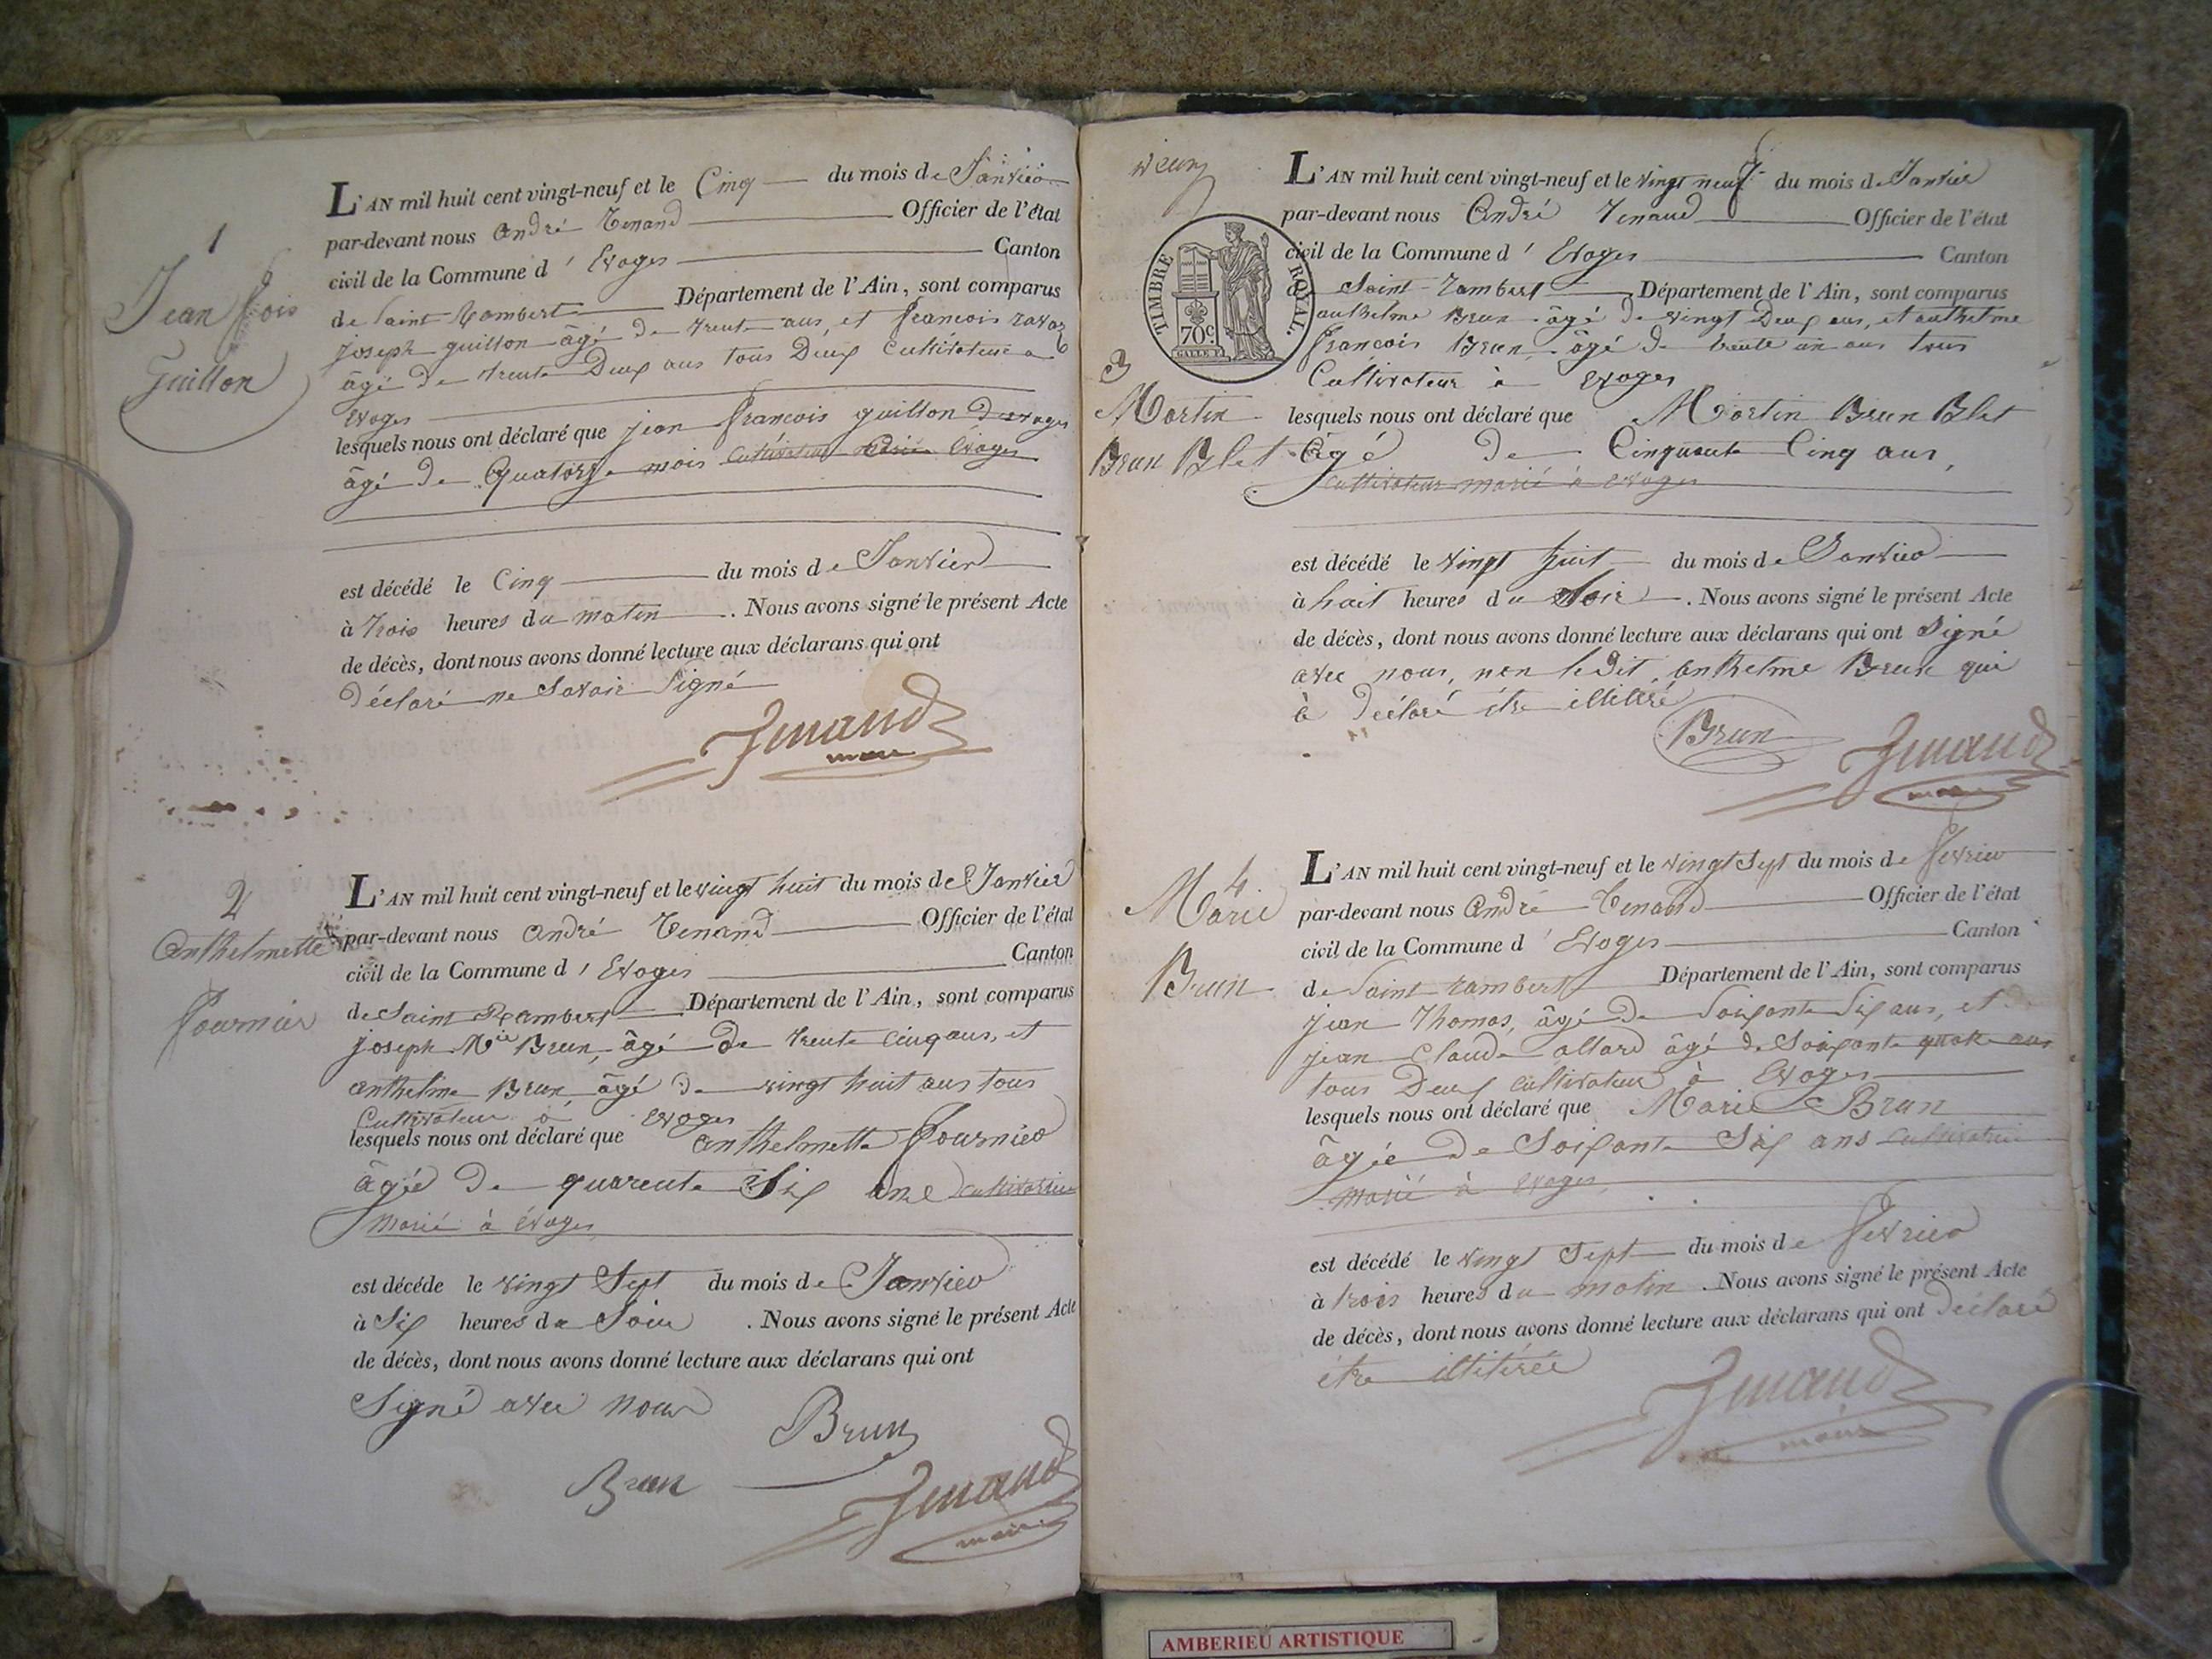 1
Jean fois
Guillon
L'AN mil huit cent vingt-neuf et le Cinq du mois de Janvier
par-devant nous André Tenand Officier de l'état
civil de la Commune d' Evoges Canton
de Saint Rambert Département de l'Ain, sont comparus
joseph guillon âgé de trente ans, et francois ravaz
âgé de trente Deux ans tous Deux Cultivateur a
Evoges
lesquels nous ont déclaré que jean francois guillon
âgé de Quatorze mois Cultivateur Evoges
est décédé le Cinq du mois de Janvier
à trois heures du matin. Nous avons signé le présent Acte
de décès, dont nous avons donné lecture aux déclarans qui ont
Déclaré ne Savoir Signé
Tenand
maire
2
Anthelmette
fournier
L'AN mil huit cent vingt-neuf et le vingt huit du mois de Janvier
par-devant nous André Tenand Officier de l'état
civil de la Commune d' Evoges Canton
de Saint Rambert Département de l'Ain, sont comparus
joseph Mie Brun, âgé de trente cinq ans, et
anthelme Brun, âgé de vingt huit ans tous
Cultivateur à Evoges
lesquels nous ont déclaré que anthelmette fournier
âgée De quarente Six ans Cultivatrice
Marié à évoges
est décéde le vingt Sept du mois de Janvier
à Six heures du Soir. Nous avons signé le présent Acte
de décès, dont nous avons donné lecture aux déclarans qui ont
Signé avec nous
Brun
Brun
Tenand
maire
TIMBRE ROYAL.
70c.
L'AN mil huit cent vingt-neuf et le vingt neuf du mois de Janvier
par-devant nous André Tenand Officier de l'état
civil de la Commune d' Evoges Canton
de Saint Rambert Département de l'Ain, sont comparus
anthelme Brun âgé de vingt Deux ans, et anthelme
francois Brun, âgé de trente un ans tous
Cultivateur à Evoges
3
Martin
Brun Blet
lesquels nous ont déclaré que Martin Brun Blet
Âgé de Cinquante Cinq ans,
Cultivateur marié à Evoges
est décédé le vingt huit du mois de Janvier
à huit heures du Soir. Nous avons signé le présent Acte
de décès, dont nous avons donné lecture aux déclarans qui ont Signé
avec nous, non ledit, anthelme Brun qui
à Déclaré être illitéré
Brun
Tenand
maire
4
Marie
Brun
L'AN mil huit cent vingt-neuf et le vingt Sept du mois de fevrier
par-devant nous André Tenand Officier de l'état
civil de la Commune d' Evoges Canton
de Saint Rambert Département de l'Ain, sont comparus
jean Thomas, âgé De Soixante Six ans, et
jean Claude allard âgé de Soixante quatre ans
tous Deux Cultivateur à Evoges
lesquels nous ont déclaré que Marie Brun
âgée De Soixante Six ans Cultivatrice
Marié à Evoges,
est décédé le vingt Sept du mois de fevrier
à trois heures du matin. Nous avons signé le présent Acte
de décès, dont nous avons donné lecture aux déclarans qui ont Déclaré
être illitérée
Tenand
maire
AMBERIEU ARTISTIQUE